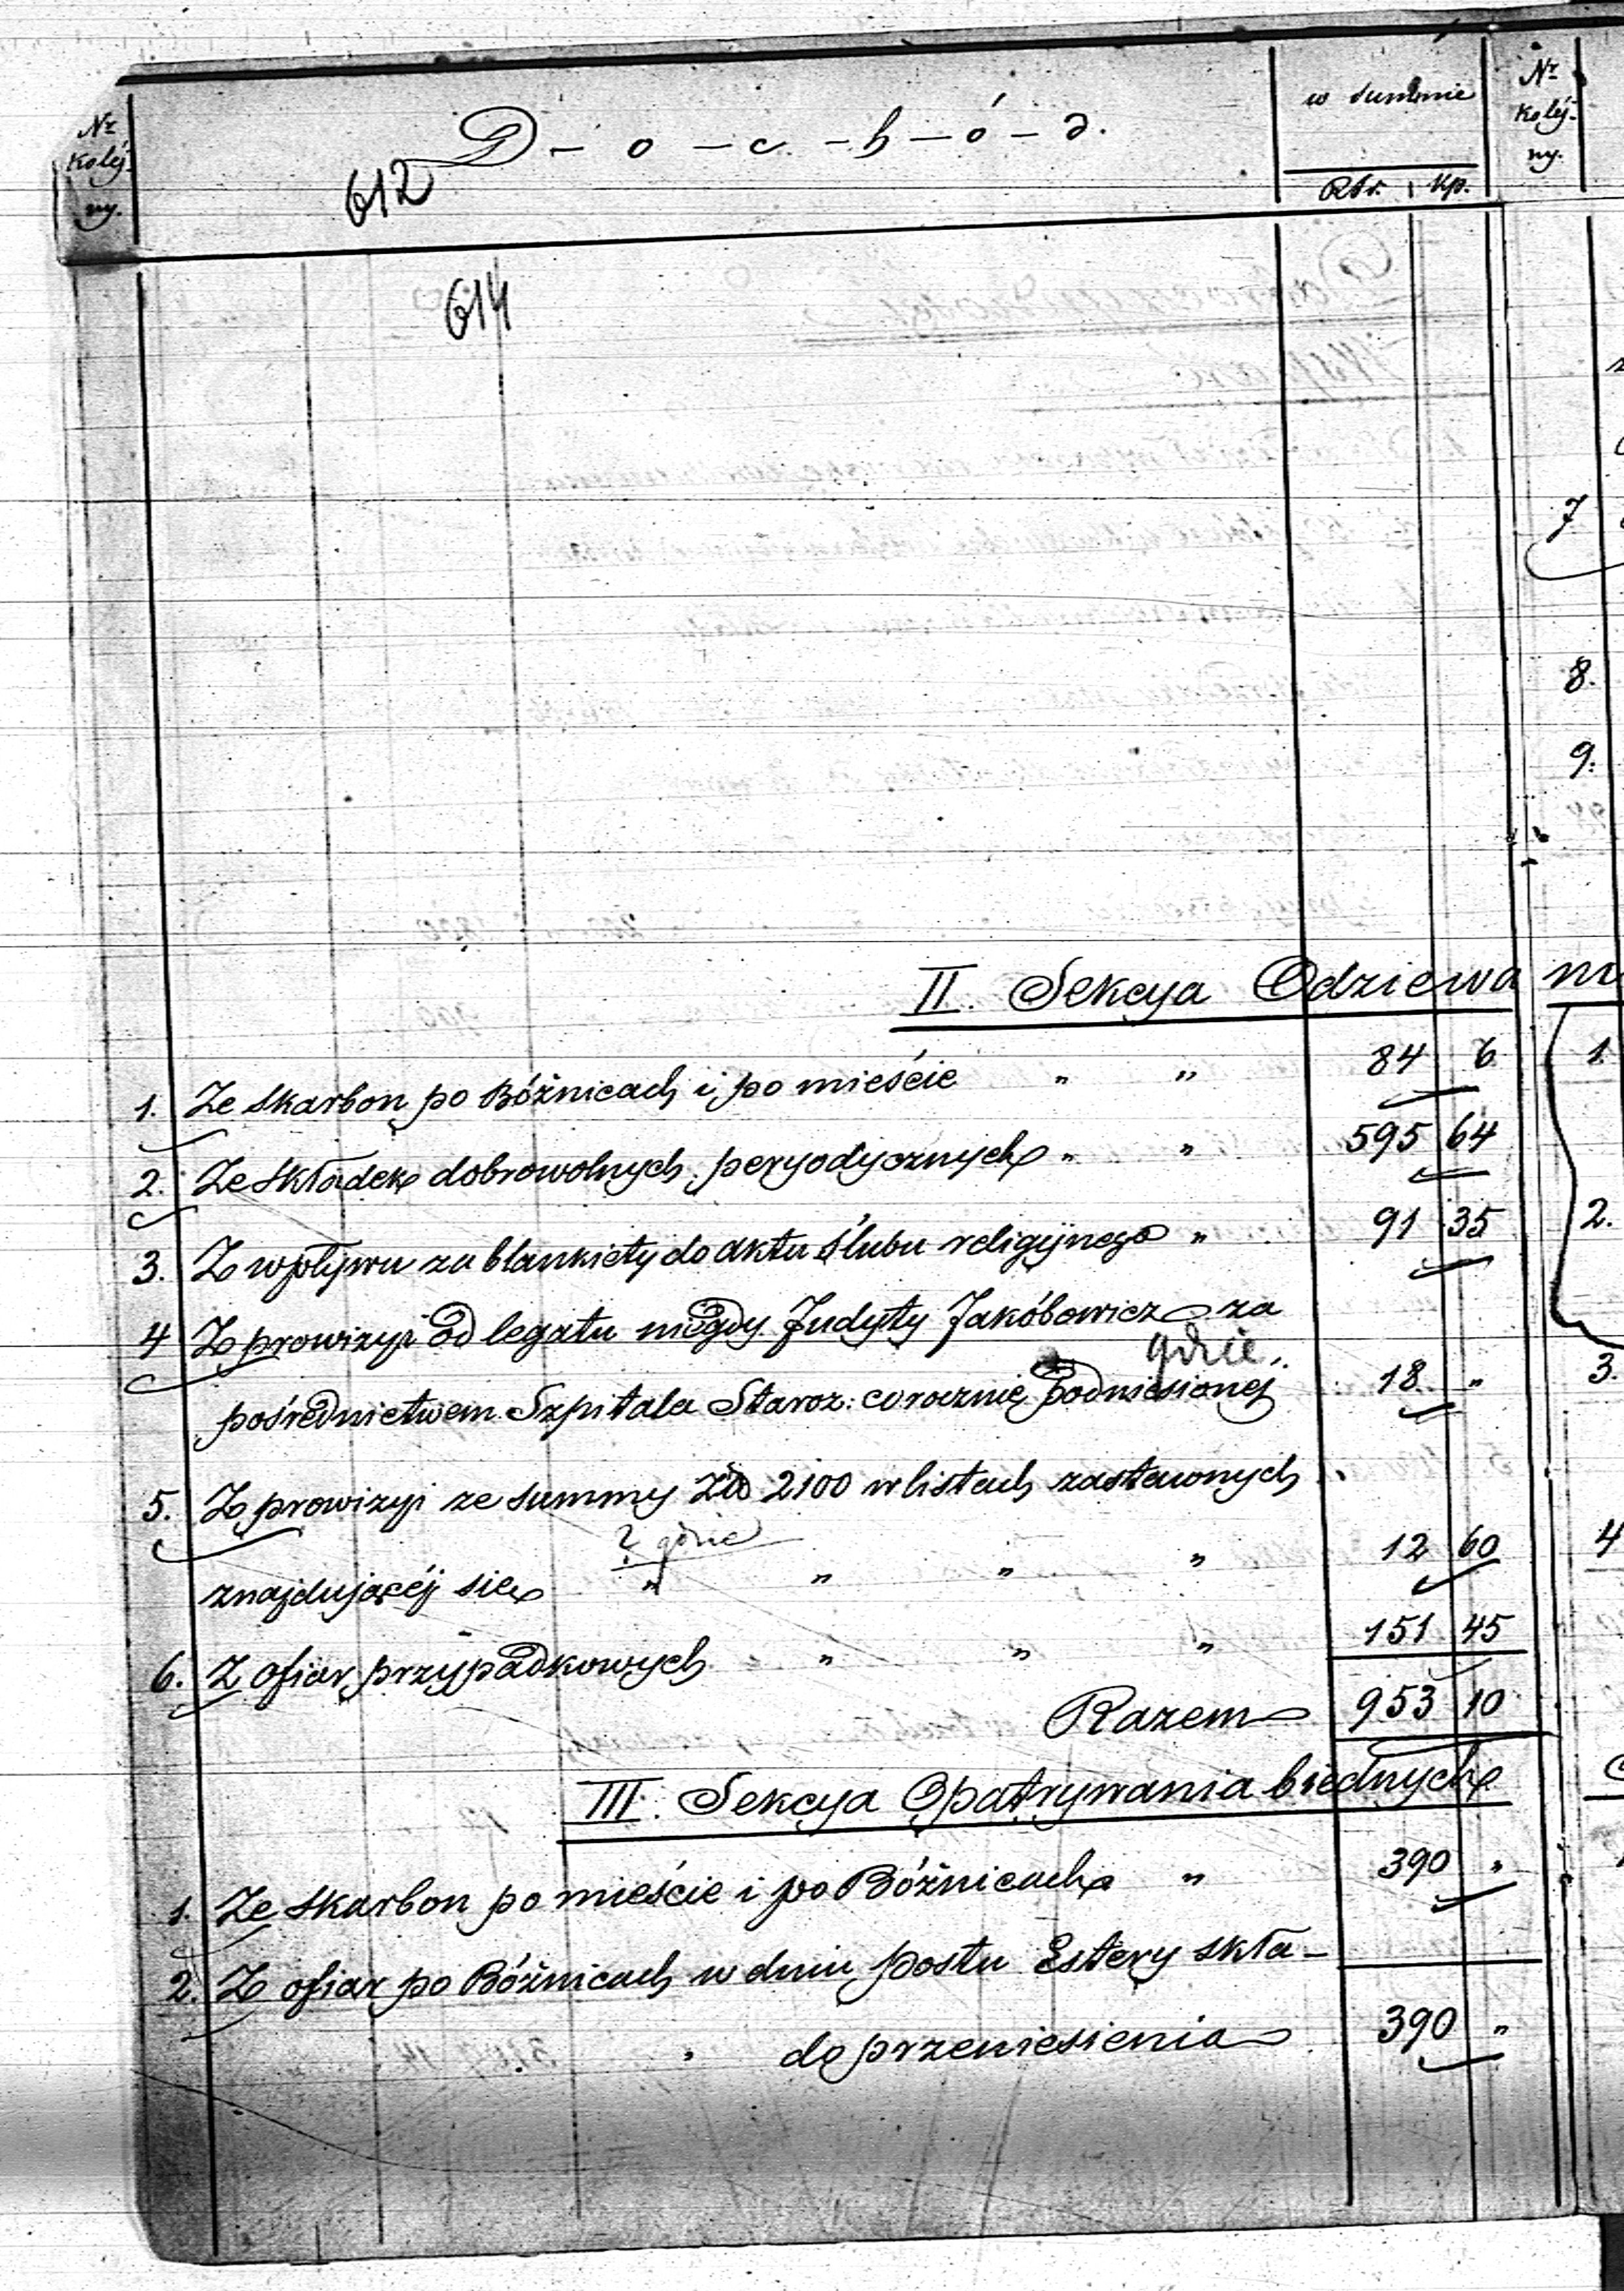 Nr kolejny.
D-o-c-h-ó-d.
w summie
Rbr. kp.
Nr kolej-
ny.
612
614
7
8.
9.
II. Sekcya Odziewa
1. Ze skarbon po Bóżnicach i po mieście " " 84 6
2. Ze składek dobrowolnych peryodycznych " " 595 64
3. Z wpływu za blankiety do aktu ślubu religijnego " 91 35
4 Z prowizyi od legatu niegdy Judyty Jakóbowicz za
gdzie
pośrednictwem Szpitala Staroz: corocznie podniesionej 18 "
5. Z prowizyi ze summy 2100 w listach zastawnych
? gdzie
znajdującéj się " " " " 12 60
6. Z ofiar przypadkowych " " " 151 45
Razem 953 10
III. Sekcya Opatrywania biednych
1. Ze skarbon po mieście i po Bóżnicach " 390 "
2. Z ofiar po Bóżnicach w dniu postu Estery skła-
do przeniesienia 390 "
1.
2.
3.
4